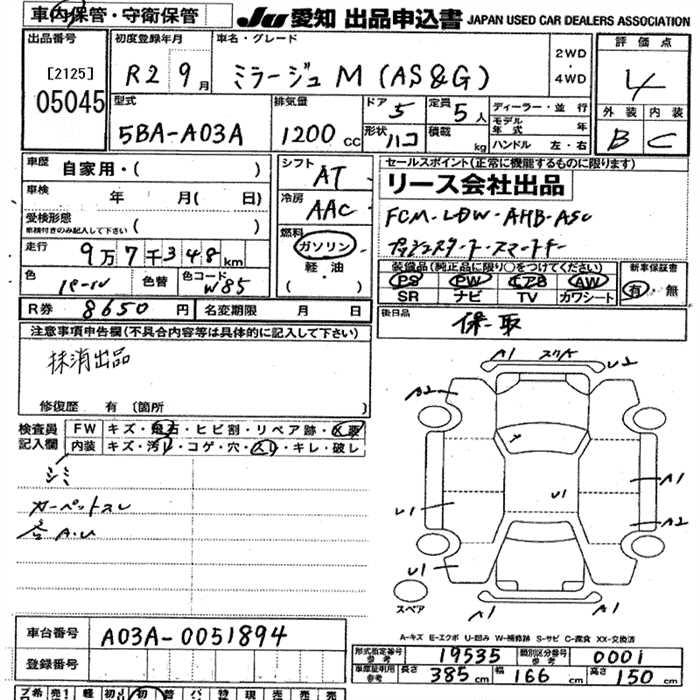 車内保管・守衛保管
JU 愛知 出品申込書 JAPAN USED CAR DEALERS ASSOCIATION
出品番号
[2125]
05045
初度登録年月
R2 9月
車名・グレード
ミラージュ M (AS&G)
2WD
・
4WD
評価点
4
外装 内装
B C
型式
5BA-A03A
排気量
1200 cc
ドア 5
定員 5人
形状 ハコ
積載 kg
ディーラー・並行
モデル年式 年
ハンドル 左・右
車歴 自家用・( )
車検 年 月( 日)
受検形態
車検付きのみ記入して下さい ( )
走行 9万7千348km
色 パール
色替
色コード W85
シフト AT
冷房 AAC
燃料
ガソリン
軽油
( ・ )
セールスポイント(正常に機能するものに限ります)
リース会社出品
FCM-LDW-AHB-ASC
プッシュスタート-スマートキー
装備品(純正品に限り○をつけてください)
PS PW エアB AW
SR ナビ TV カワシート
新車保証書
有・無
R券 8650円
名変期限 月 日
後日品
保-取
注意事項申告欄(不具合内容等は具体的に記入して下さい)
抹消出品
修復歴 有 〔箇所 〕
検査員記入欄
FW キズ・飛石・ヒビ割・リペア跡・X要
内装 キズ・汚レ・コゲ・穴・スレ・キレ・破レ
シミ
カーペットスレ
A.U
A1 スリキ U2
A2
A1
U1
U1
A2
U1
A1
A1
スペア
A-キズ E-エクボ U-凹み W-補修跡 S-サビ C-腐食 XX-交換済
車台番号 A03A-0051894
登録番号
形式指定番号 参考 19535
類別区分番号 参考 0001
車庫証明用 参考 長さ 385cm 幅 166cm 高さ 150cm